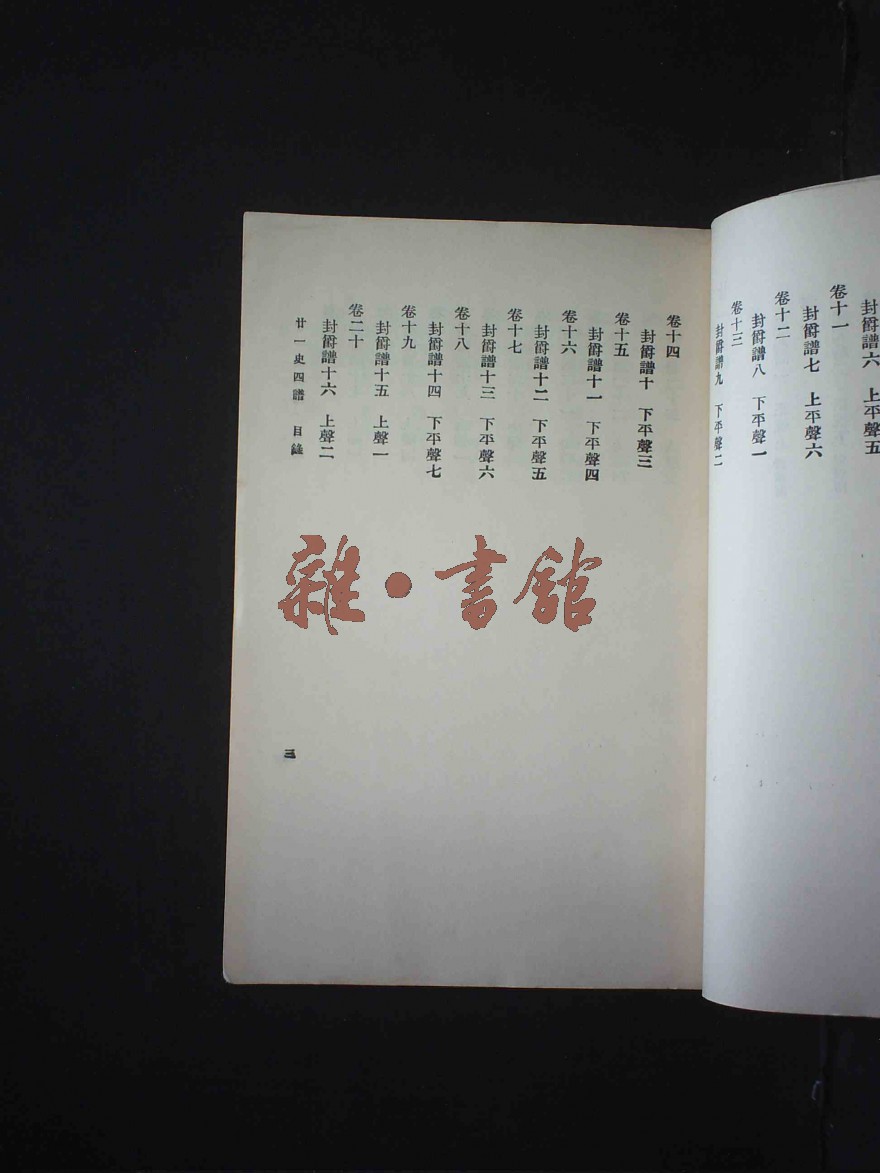 封爵譜六　上平聲五
卷十一
封爵譜七　上平聲六
卷十二
封爵譜八　下平聲一
卷十三
封爵譜九　下平聲二
卷十四
封爵譜十　下平聲三
卷十五
封爵譜十一　下平聲四
卷十六
封爵譜十二　下平聲五
卷十七
封爵譜十三　下平聲六
卷十八
封爵譜十四　下平聲七
卷十九
封爵譜十五　上聲一
卷二十
封爵譜十六　上聲二
廿一史四譜　目錄
三
雜·書館